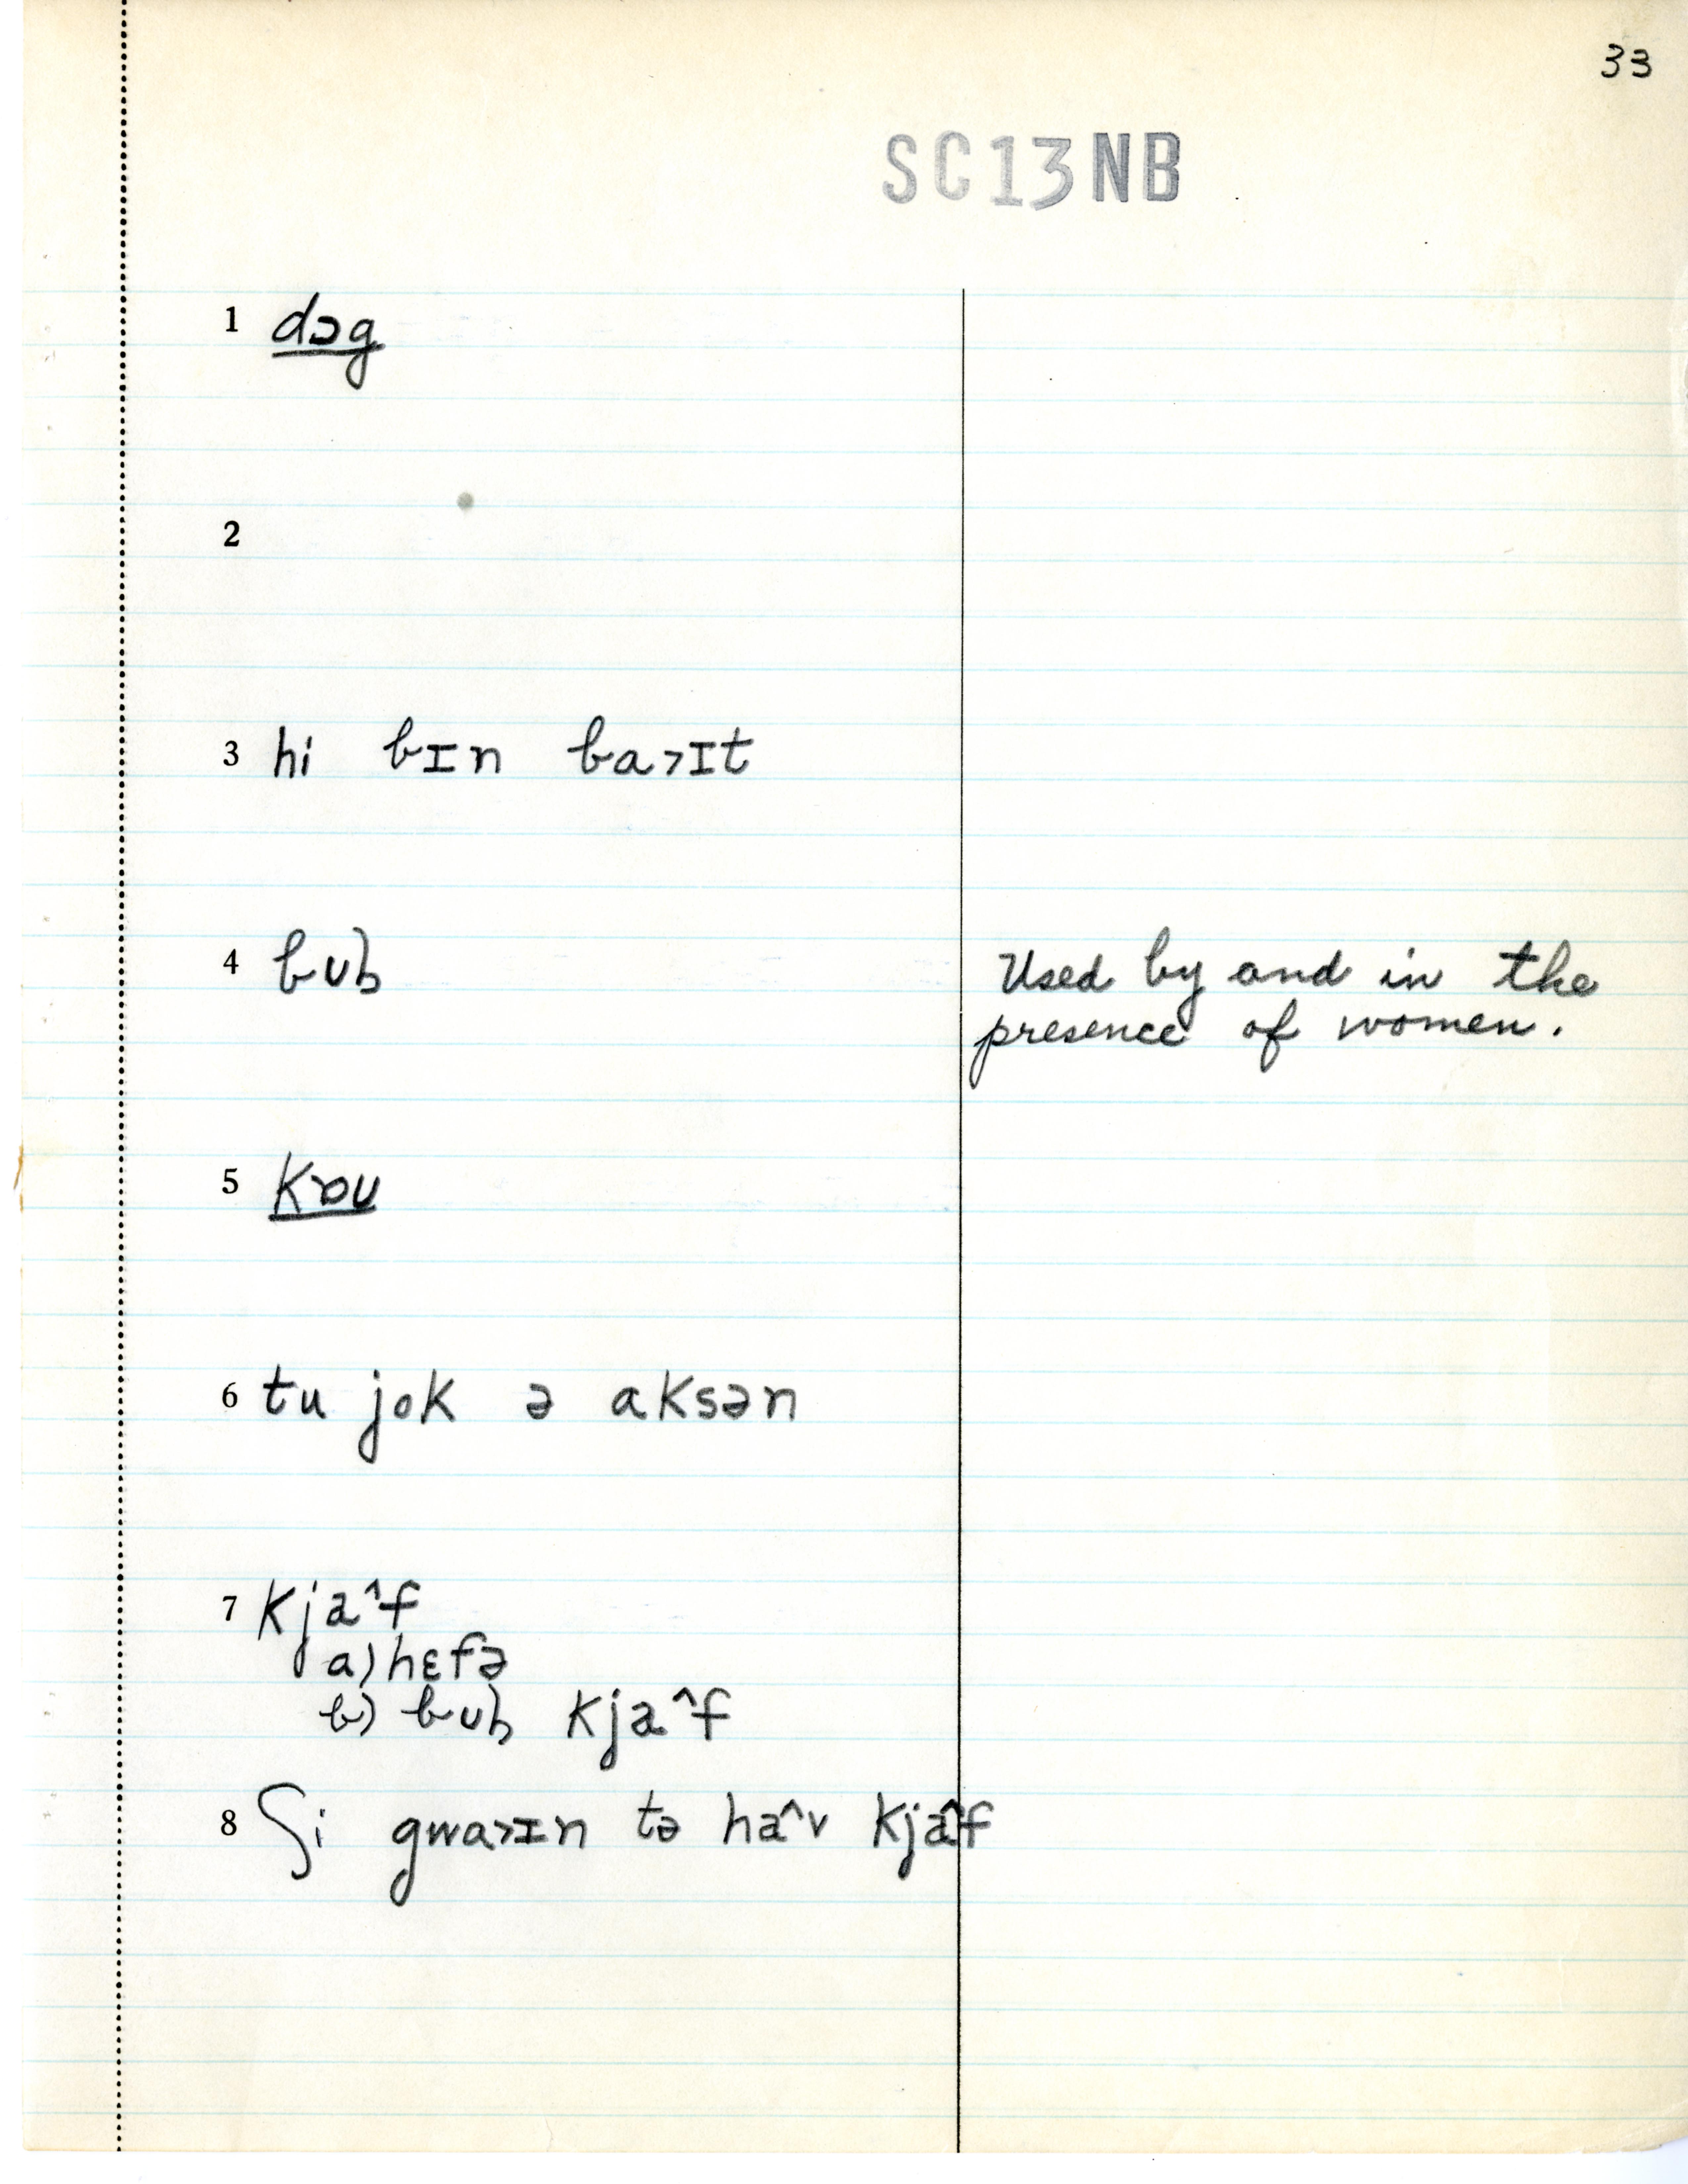 33
SC13NB
1 dɔg
2
3 hi bɪn ba>ɪt
4 bʊl Used by and in the
presence of women.
5 kɒu
6 tu jok ə aksən
7 kja^f
a) hɛfə
b) bʊl kja^f
8 ʃi gwa>ɪn tə ha^v kja^f